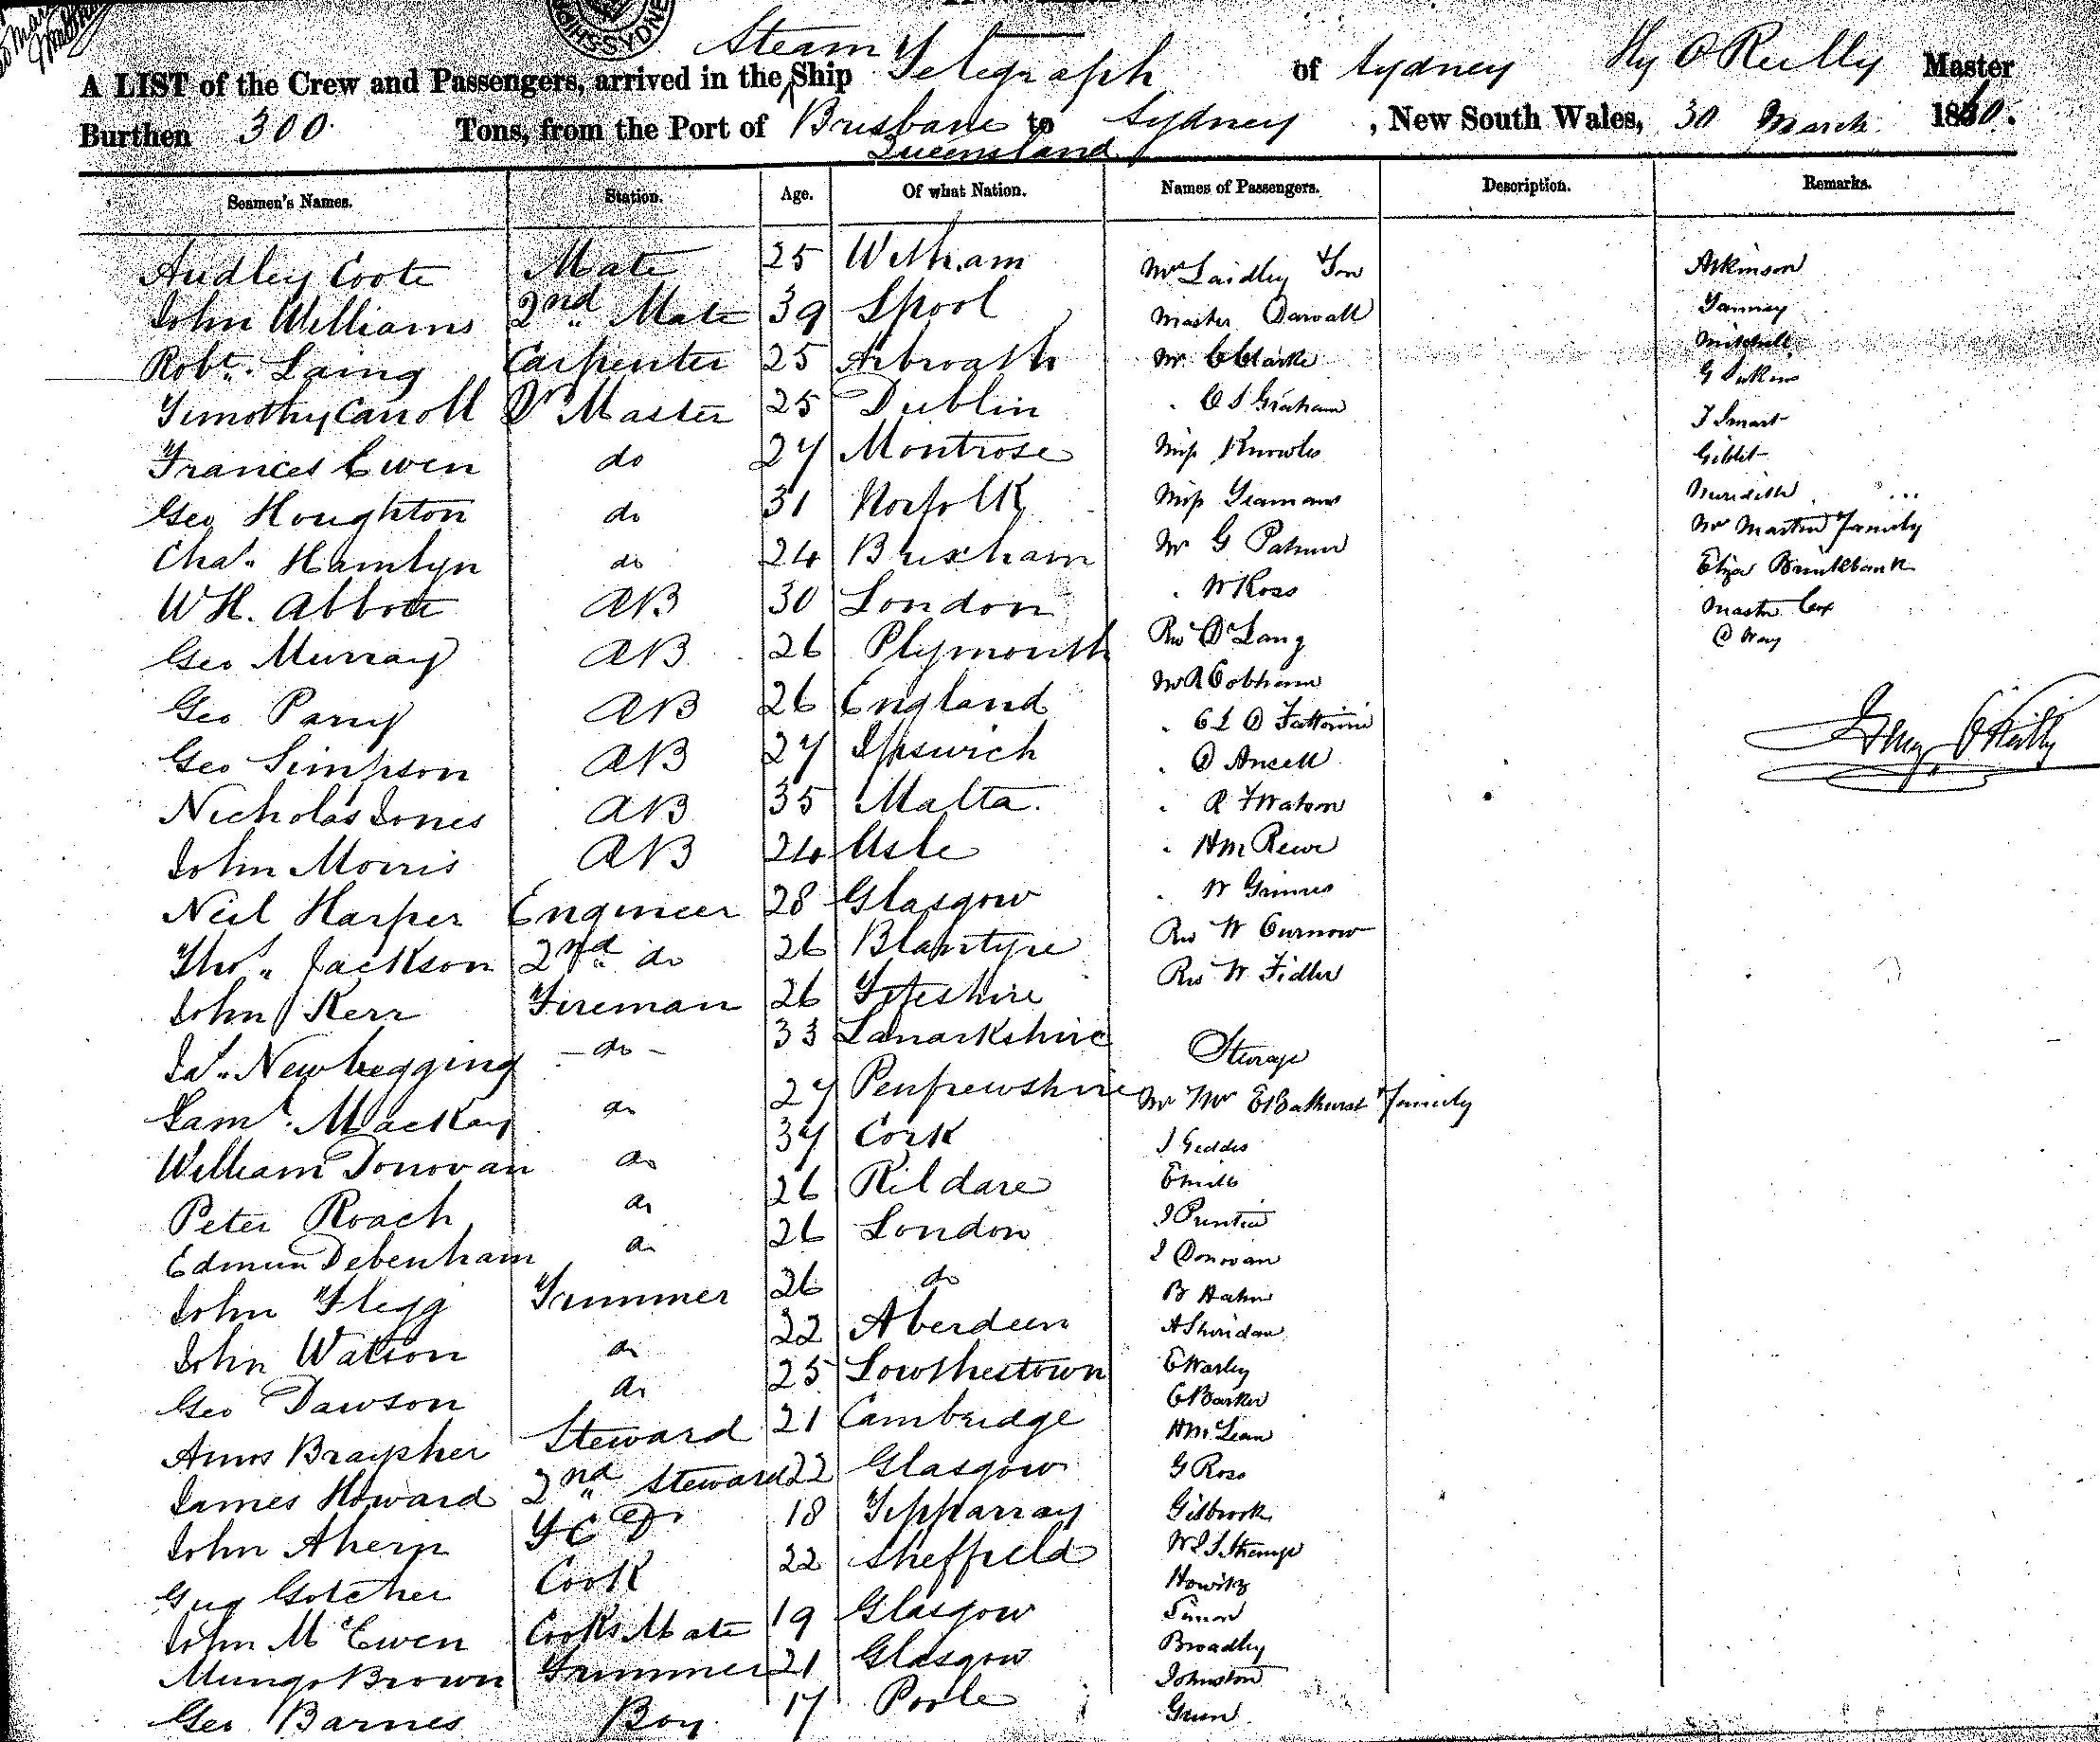 Steam
A LIST of the Crew and Passengers, arrived in the Ship Telegraph of Sydney Hy O'Reilly Master
Burthen 300 Tons, from the Port of Brisbane to Sydney, New South Wales, 30 March 1860.
Queensland
Seamen's Names. Station. Age. Of what Nation. Names of Passengers. Description. Remarks.
Audley Coote Mate 25 Witham Mrs Laidley & Son Atkinson
John Williams 2nd Mate 39 Lpool Master Darvall
Robt. Laing Carpenter 25 Arbroath Mr C Clarke Mitchell
Timothy Carroll Qr Master 25 Dublin " Graham
Frances Ewen do 27 Montrose Miss Knowles J Smart
Geo Houghton do 31 Norfolk Miss Giblet
Chas. Hamlyn do 24 Brixham Mr G Meredith
WH. Abbott AB 30 London " W Ross Mr Martin & family
Geo Murray AB 26 Plymouth Rev Dr Lang Eliza
Geo Parry AB 26 England Mr A Cobham Master Cox
Geo Simpson AB 27 Ipswich " D Way
Nicholas Jones AB 35 Malta. " D Ansell
John Morris AB 24 " R F Watson
Neil Harper Engineer 28 Glasgow " W Grimes
Thos. Jackson 2nd do 26 Blantyre Rev W Curnow
John Kerr Fireman 26 Fifeshire Rev W Fidler
Jas. Newbegging - do - 33 Lanarkshire Steerage
Saml. Mackay do 27 Renfrewshire Mr Mrs E Bathurst & family
William Donovan do 37 Cork J Geddes
Peter Roach do 26 Kildare E Mills
Edmun Debenham do 26 London J Prentice
John Flegg Trimmer 26 do J Donovan
John Watson do 22 Aberdeen B Hahn
Geo Dawson do 25 Lowthestown A Sheridan
Amos Braysher Steward 21 Cambridge E Warley
James Howard 2nd Steward 22 Glasgow C Barker
John Ahern 18 Tipparray H McLean
Guy Gotcher Cook 22 Sheffield G Ross
John McEwen Cooks Mate 19 Glasgow Gilbrook
Mungo Brown Trimmer 21 Glasgow
Geo Barnes Boy 17 Poole Howitz
Simon
Broadley
Johnston
Green
Henry O'Reilly